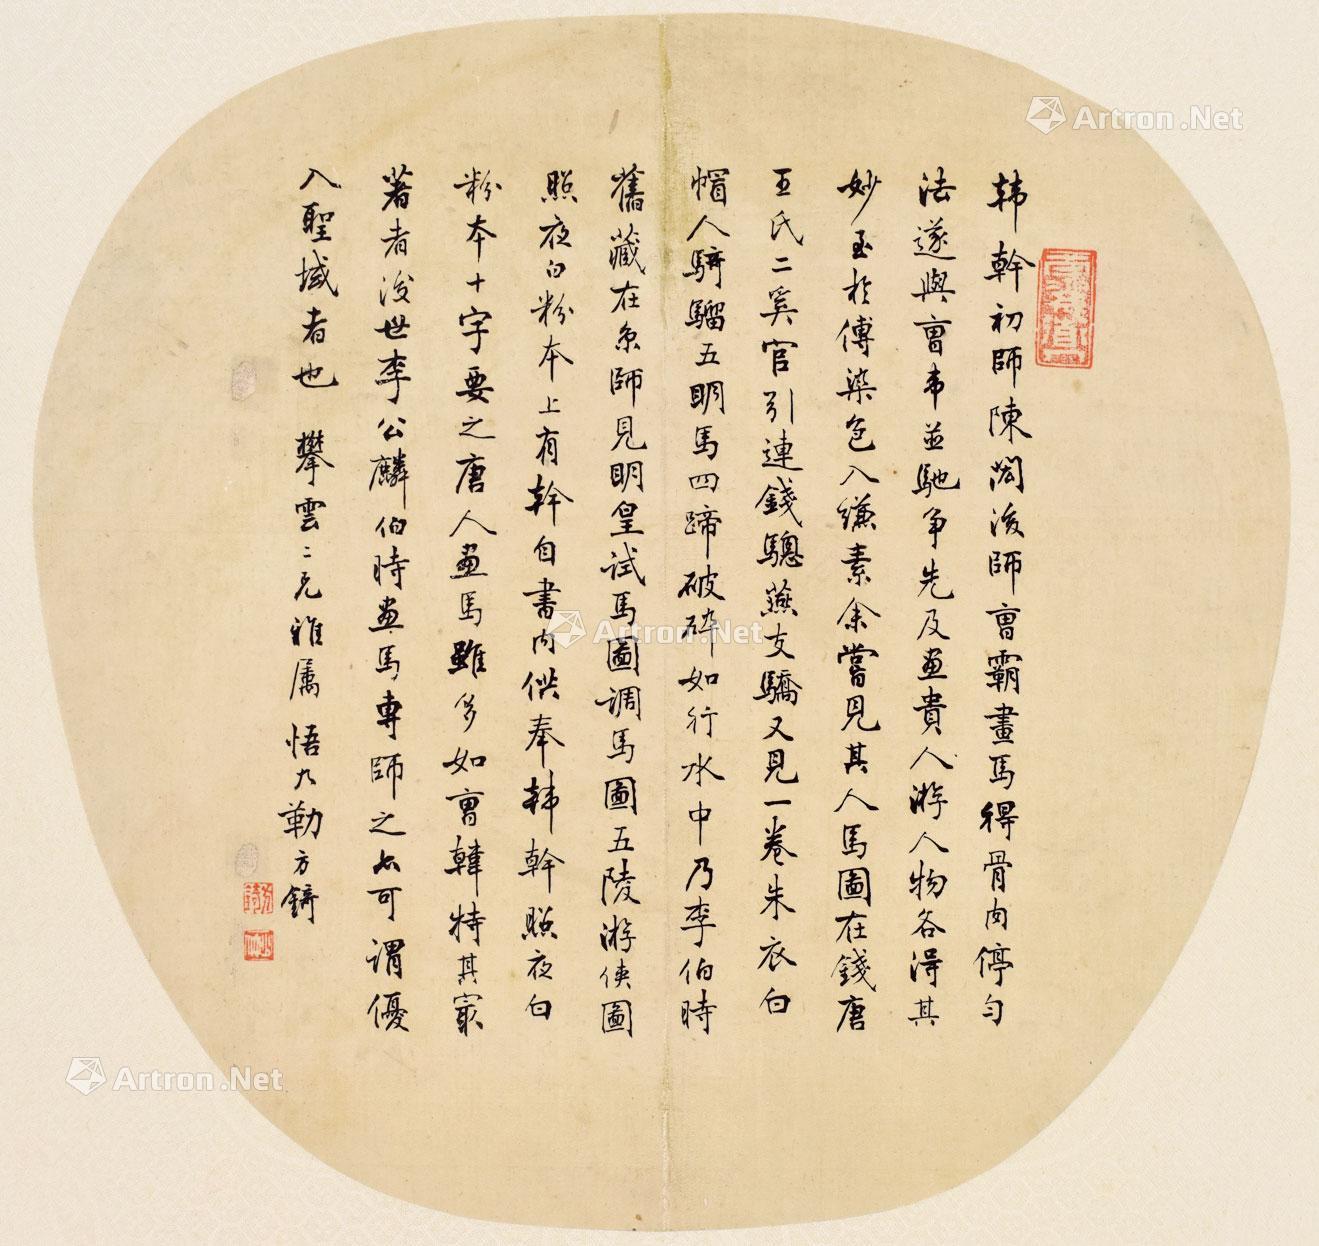 韩幹初師陳閎後師曹霸畫馬得骨肉停勻
法遂與曹韦並馳争先及畫貴人游人物各得其
妙至於傅染色入縑素余嘗見其人馬圖在錢唐
王氏二奚官引連錢驄燕支驕又見一卷朱衣白
帽人騎騮五明馬四蹄破碎如行水中乃李伯時
舊藏在京師見明皇試馬圖調馬圖五陵游俠圖
照夜白粉本上有幹自書内供奉韩幹照夜白
粉本十字要之唐人畫馬雖多如曹韓特其最
著者後世李公麟伯時畫馬専師之亦可謂優
入聖域者也 攀雲二兄雅属 悟九勒方錡
Artron.Net
Artron.Net
Artron.Net